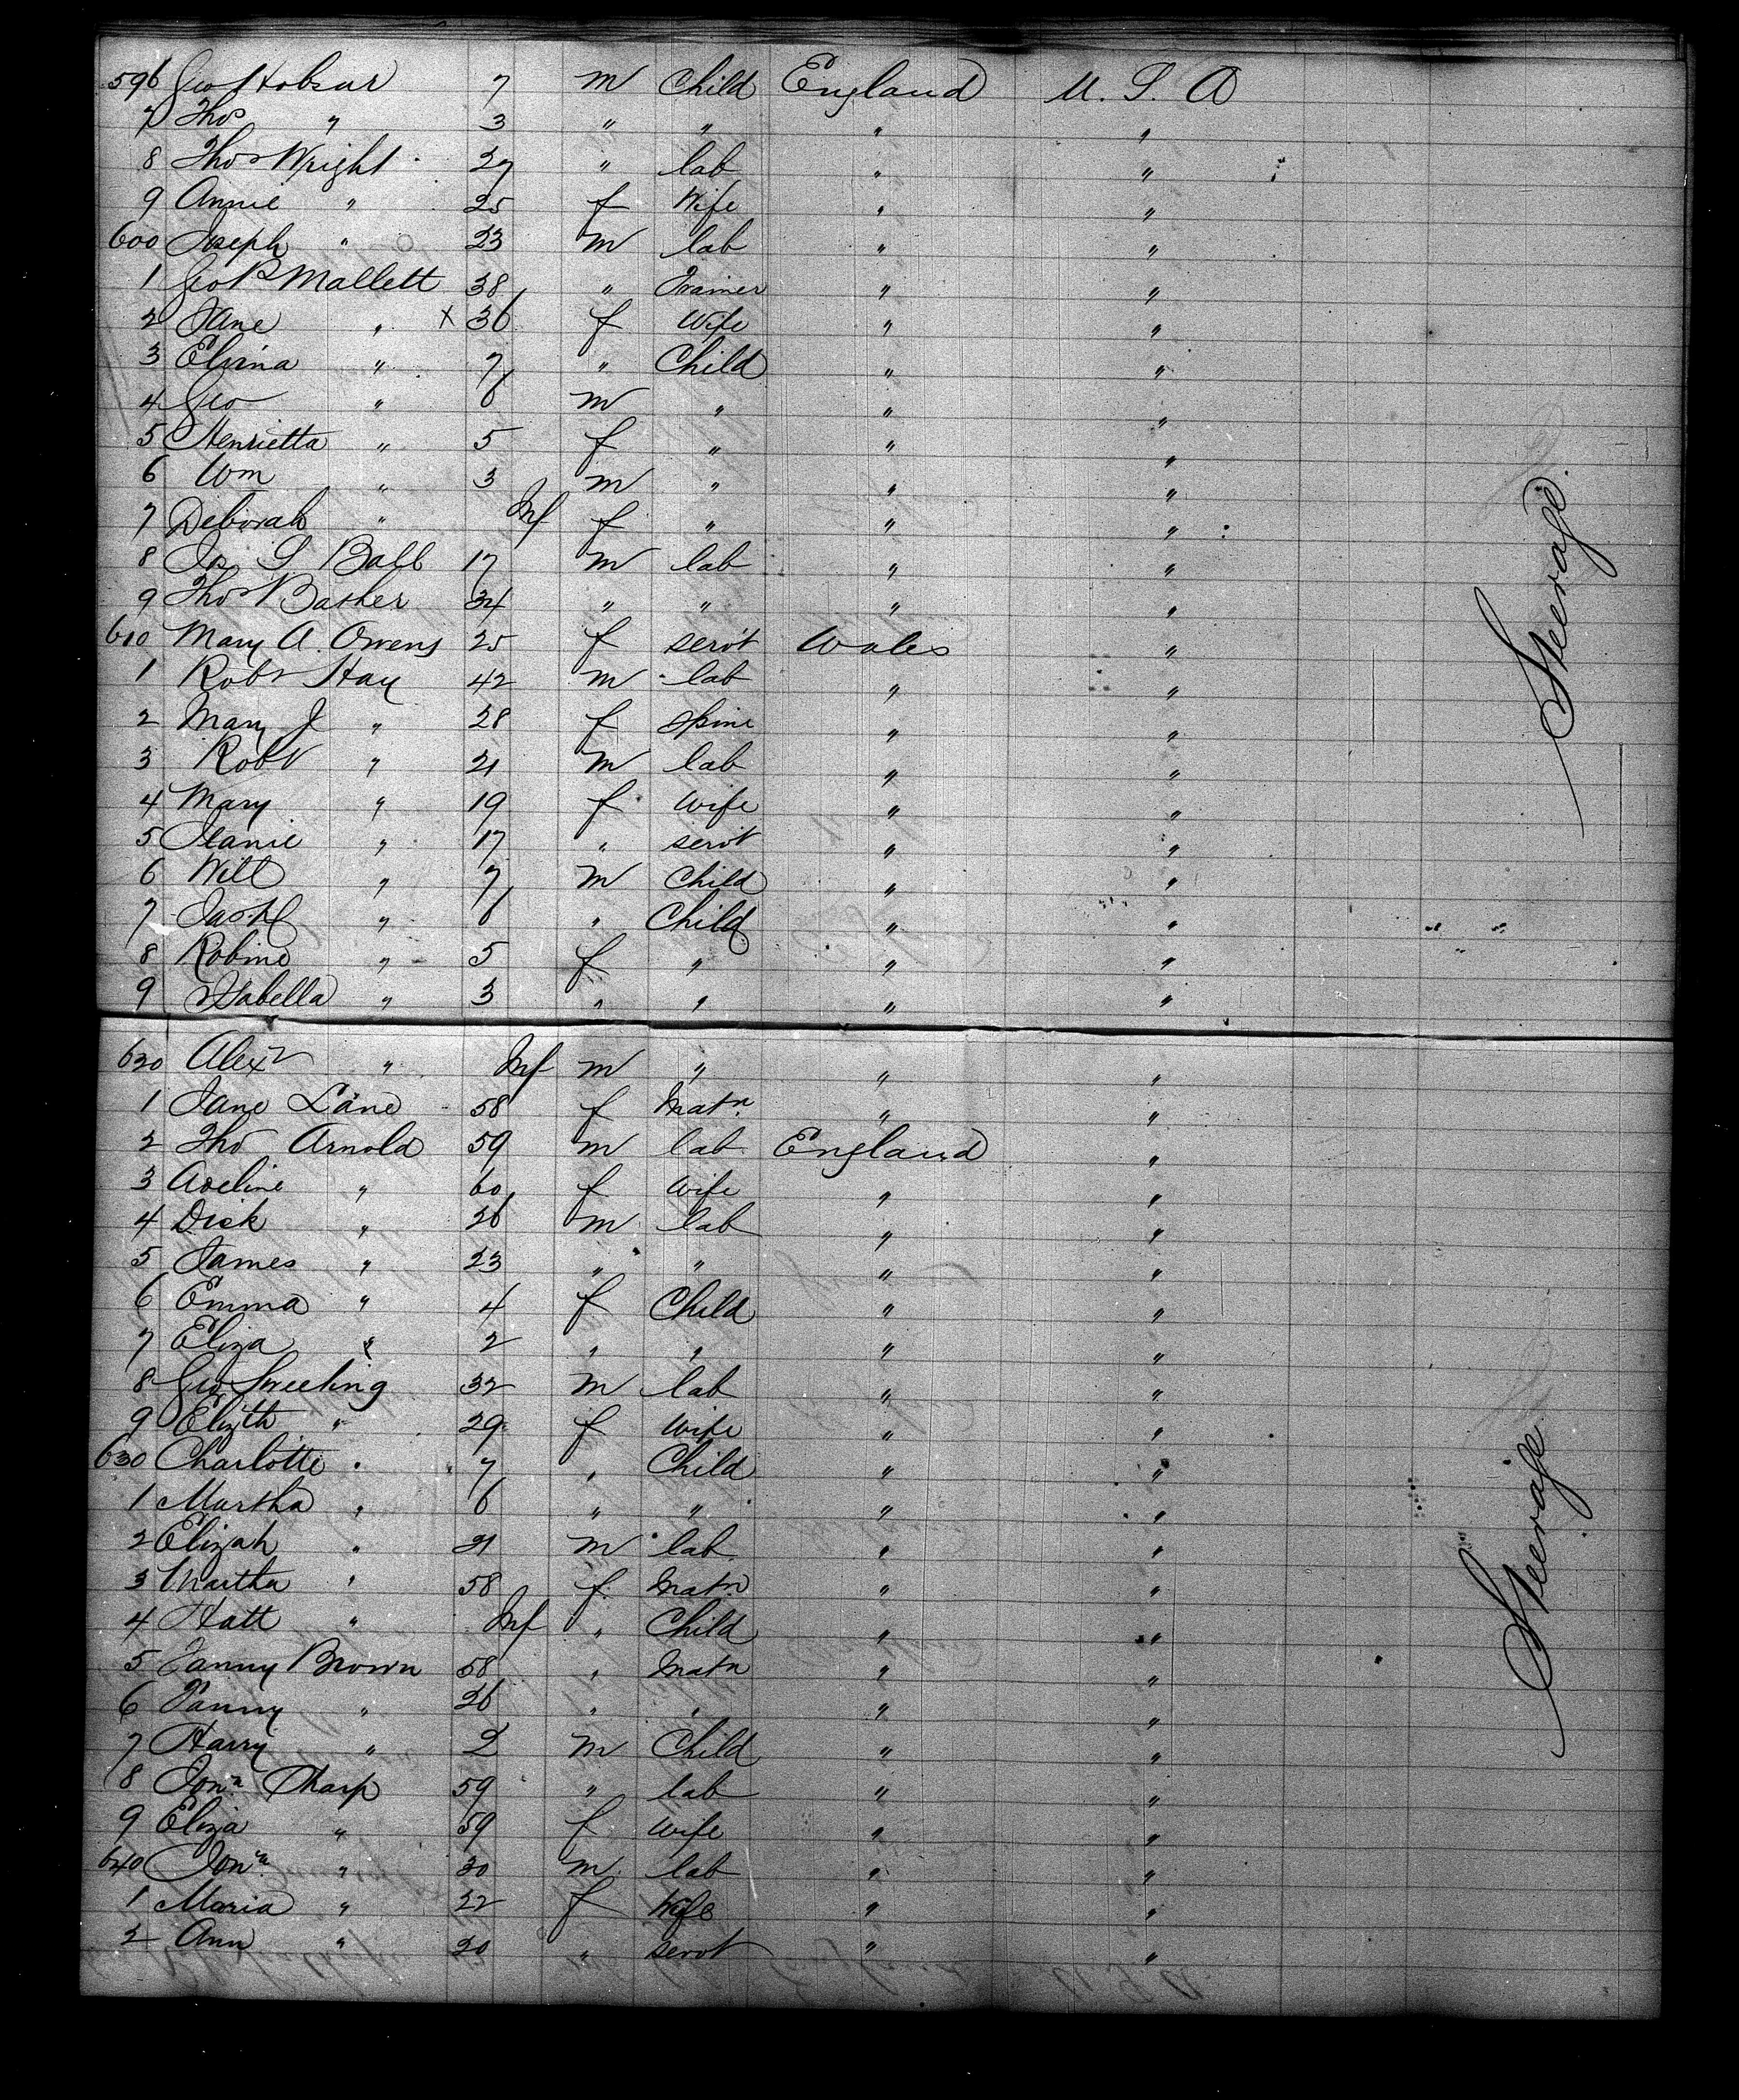 596 Geo Hobson 7 m Child England U. S. A
7 Thos " 3 " " " "
8 Thos Wright 27 " lab " "
9 Annie " 25 f Wife " "
600 Joseph " 23 m lab " "
1 Geo P Mallett 38 " " "
2 Jane " x 36 f Wife " "
3 Elvina " 7 " Child " "
4 Geo " 6 m " " "
5 Henrietta " 5 f " " "
6 Wm " 3 m " " "
7 Deborah " Inf f " " "
8 Js S Ball 17 m lab " "
9 Thos Basher 34 " " " "
610 Mary A. Owens 25 f servt Wales "
1 Robt Hay 42 m lab " "
2 Mary J " 28 f spine " "
3 Robt " 21 m lab " "
4 Mary " 19 f wife " "
5 Jeanie " 17 " servt " "
6 Will " 7 m Child " "
7 " 6 " Child " "
8 Robina " 5 f " " "
9 Isabella " 3 " " " "
620 Alexr " Inf m " " "
1 Jane Lane 58 f Matn " "
2 Tho Arnold 59 m lab England "
3 Aveline " 60 f Wife " "
4 Dick " 26 m lab " "
5 James " 23 " " " "
6 Emma " 4 f Child " "
7 Eliza " 2 " " " "
8 Geo Sweeting 32 m lab " "
9 Elizth " 29 f Wife " "
630 Charlotte " 7 " Child " "
1 Martha " 6 " " " "
2 Elizah " 21 m lab " "
3 Martha " 58 f Matn " "
4 Hatt " Inf " Child " "
5 Fanny Brown 58 " Matn " "
6 Fanny " 26 " " " "
7 Harry " 2 m Child " "
8 Jonn Tharp 59 " lab " "
9 Eliza " 59 f wife " "
640 Jonn " 30 m lab " "
1 Maria " 22 f Wife " "
2 Ann " 20 " servt " "
Steerage
Steerage